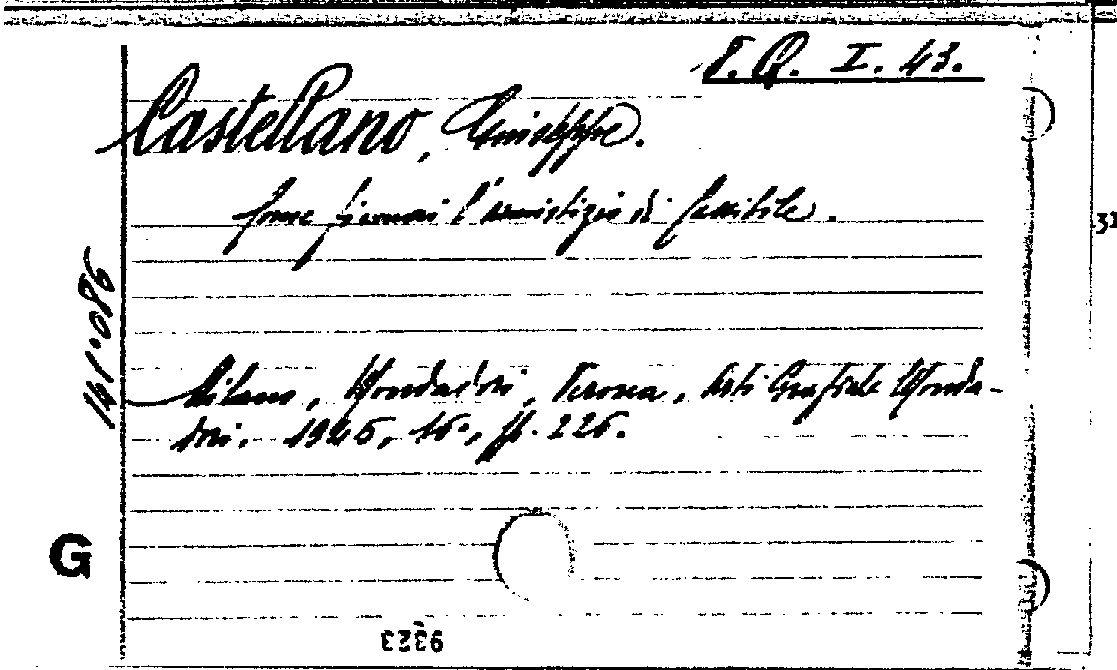 T. Q. I. 43.
Castellano, Giuseppe.
Come firmai l'armistizio di Cassibile.
141.086
Milano, Mondadori, Verona, Arti Grafiche Monda-
dori. 1945, 16°, p. 226.
G
9323
31